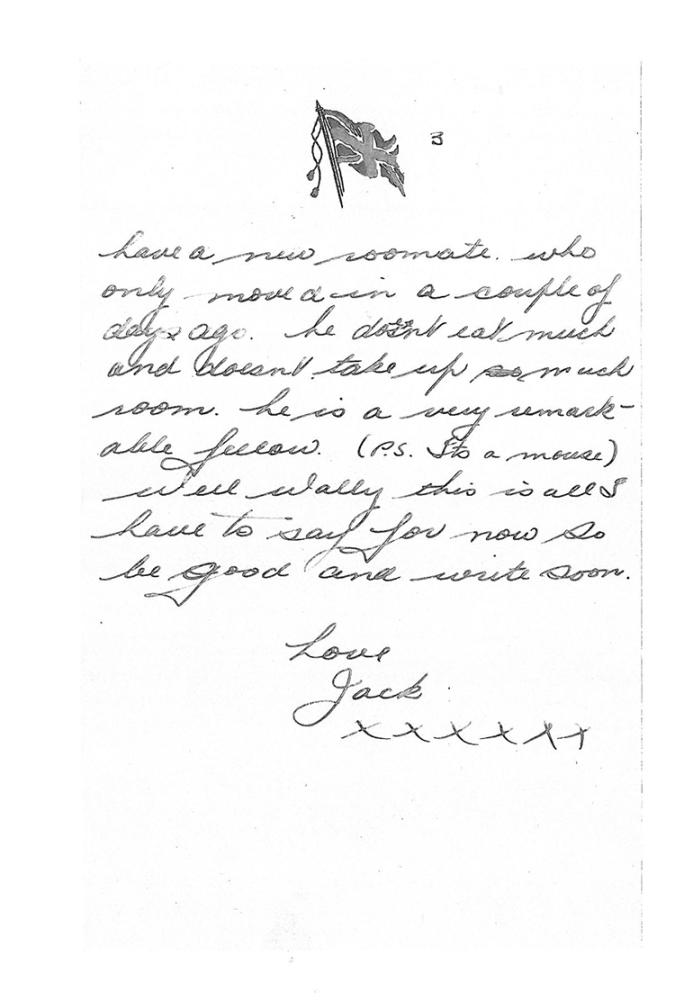 3
have a new roomate. who
only moved in a couple of
days ago. he doesnt eat much
and doesnt take up so much
room. he is a very remark-
able fellow. (P.S. Its a mouse)
well Wally this is all I
have to say for now so
be good and write soon.
Love
Jack
xxxxxx